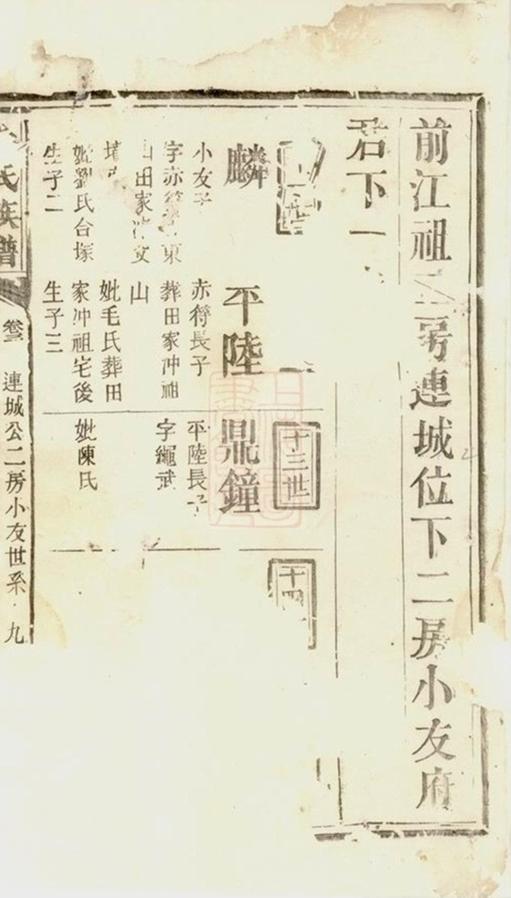 前江祖二房連城位下二房小友府
君下
十三世
十四
麟
小友子
字赤符
東
山田家
妣劉氏台塚
生子二
平陸
赤符長子
葬田家冲祖
山
妣毛氏葬田
家冲祖宅後
生子三
鼎鐘
平陸長子
字繩武
妣陳氏
氏族譜
卷三
連城公二房小友世系
九